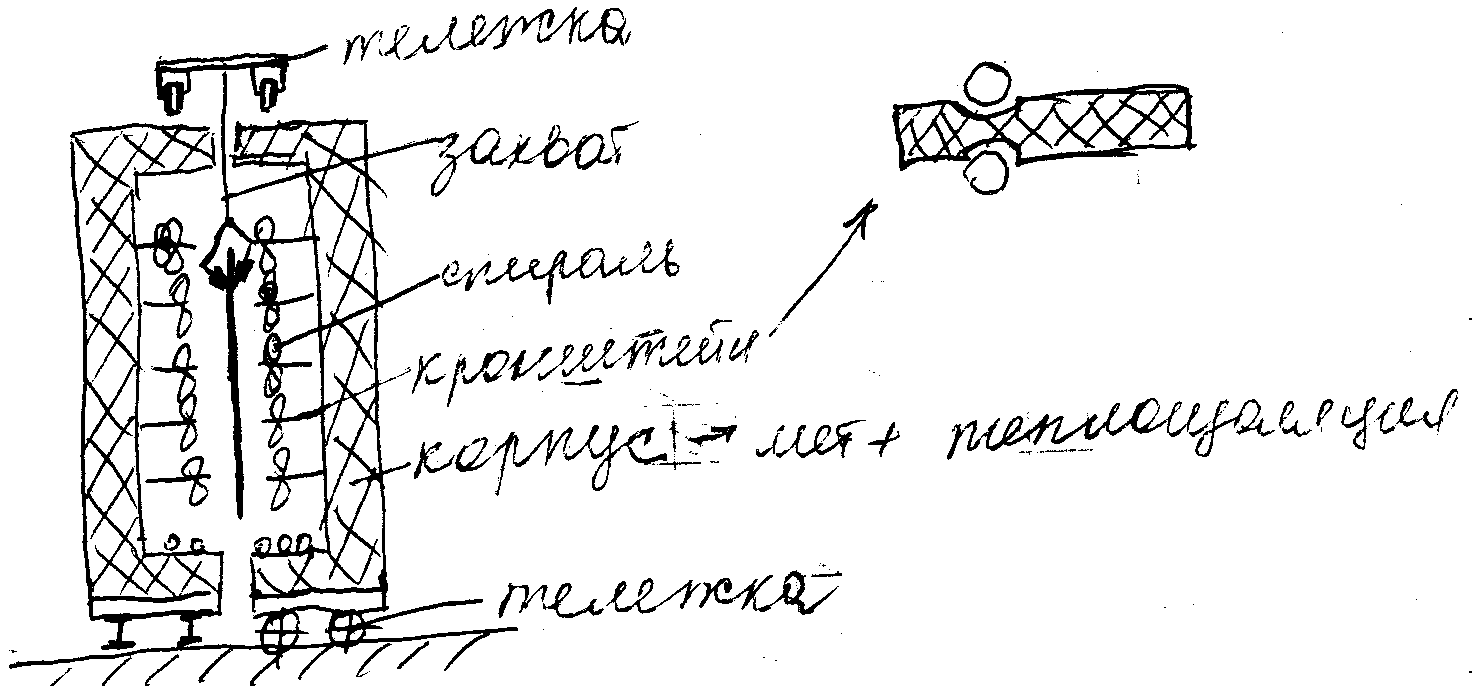 тележка
захват
спираль
кронштейн
корпус → мет + теплоизоляция
тележка